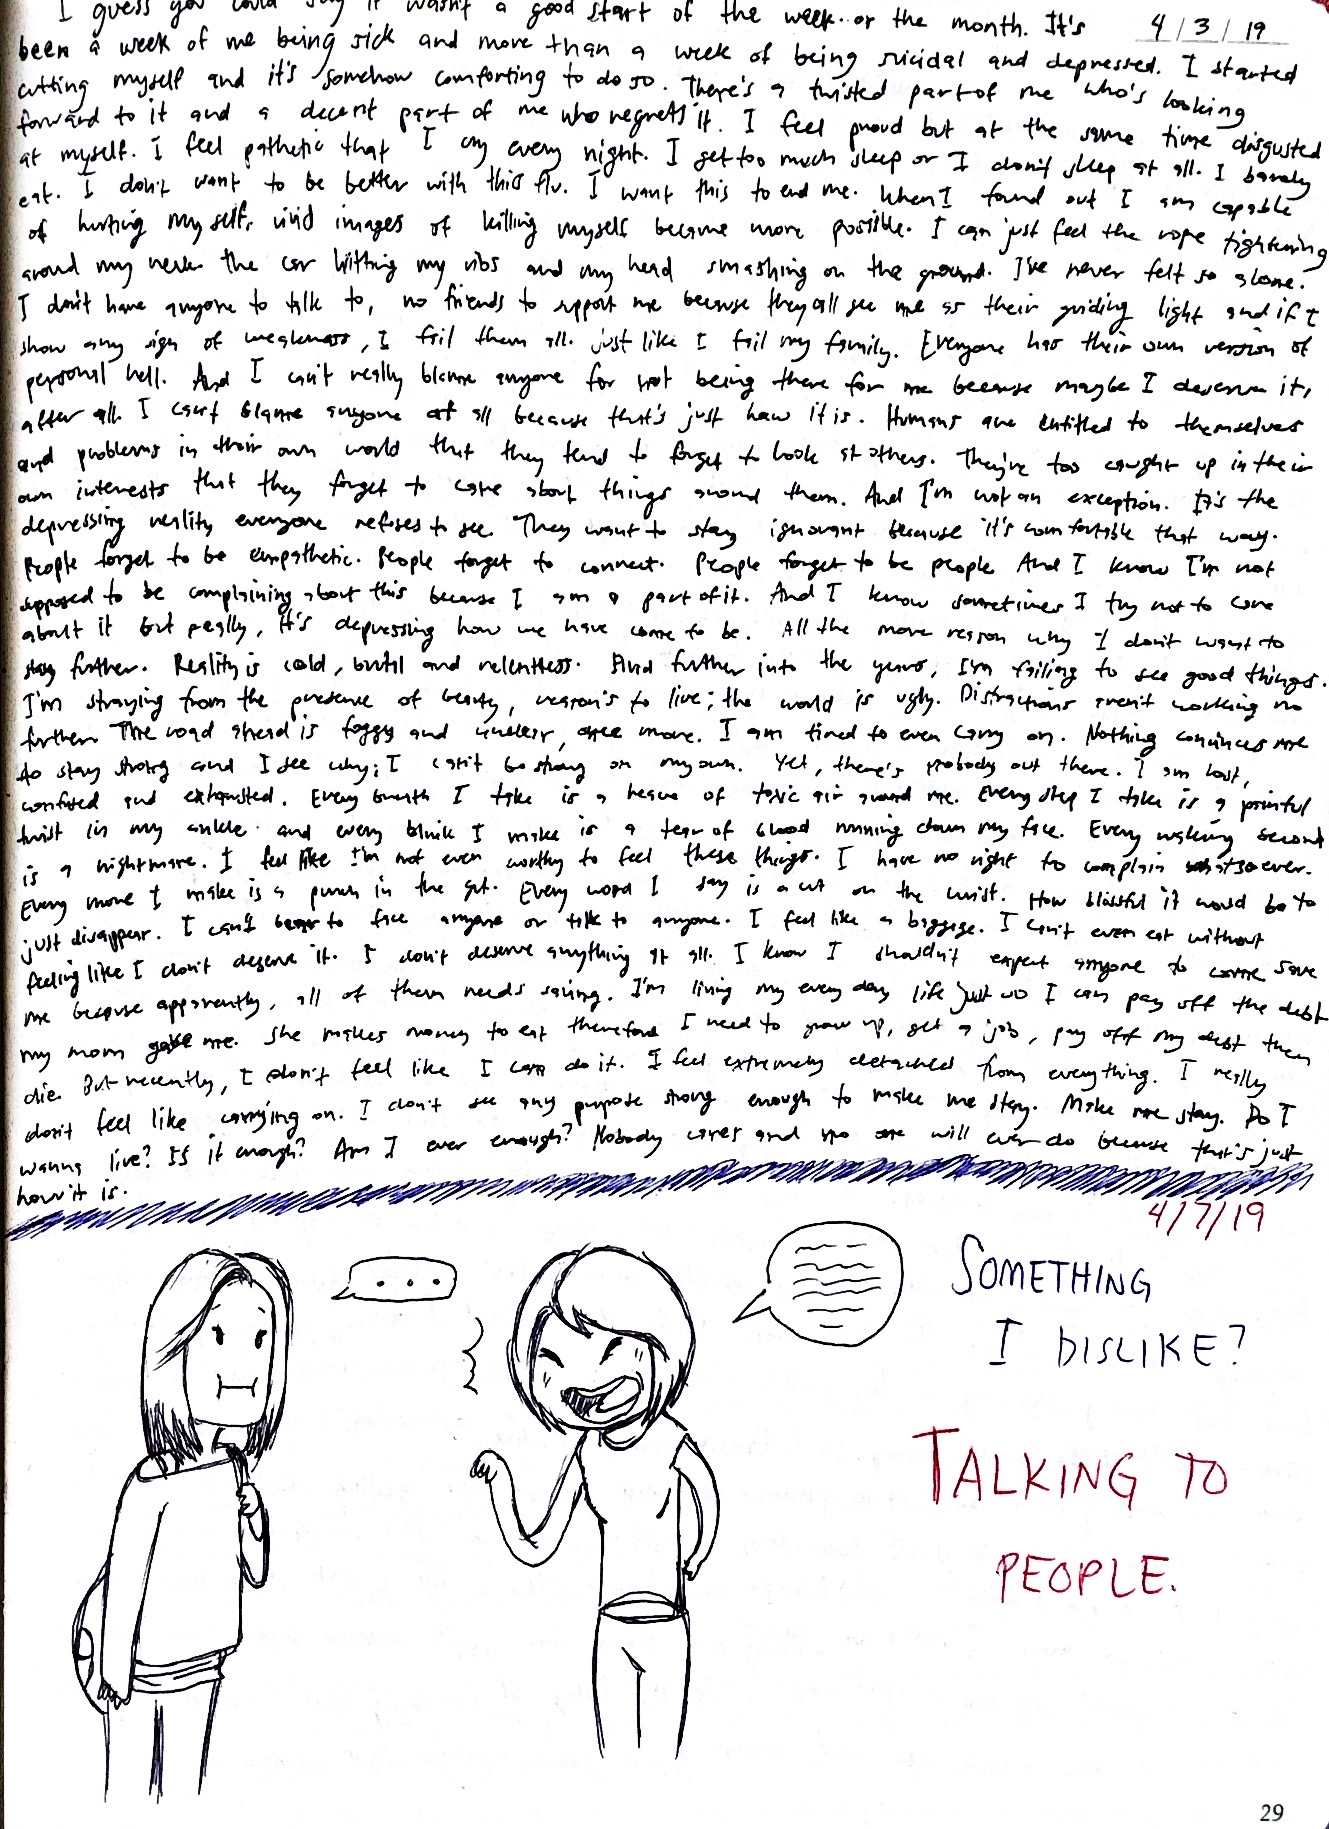 I guess you could say it wasn't a good start of the week or the month. It's 4/3/19
been a week of me being sick and more than a week of being suicidal and depressed. I started
cutting myself and it's somehow comforting to do so. There's a twisted part of me who's looking
forward to it and a decent part of me who regrets it. I feel proud but at the same time disgusted
at myself. I feel pathetic that I cry every night. I get too much sleep or I don't sleep at all. I barely
eat. I don't want to be better with this flu. I want this to end me. When I found out I am capable
of hurting myself, vivid images of killing myself became more possible. I can just feel the rope tightening
around my neck the car hitting my ribs and my head smashing on the ground. I've never felt so alone.
I don't have anyone to talk to, no friends to support me because they all see me as their guiding light and if I
show any sign of weakness, I fail them all. just like I fail my family. Everyone has their own version of
personal hell. And I can't really blame anyone for not being there for me because maybe I deserve it,
after all. I can't blame anyone at all because that's just how it is. Humans are entitled to themselves
and problems in their own world that they tend to forget to look at others. They're too caught up in their
own interests that they forget to care about things around them. And I'm not an exception. It's the
depressing reality everyone refuses to see. They want to stay ignorant because it's comfortable that way.
People forget to be empathetic. People forget to connect. People forget to be people And I know I'm not
supposed to be complaining about this because I am a part of it. And I know sometimes I try not to care
about it but really, it's depressing how we have come to be. All the more reason why I don't want to
stay further. Reality is cold, brutal and relentless. And further into the years, I'm failing to see good things.
I'm straying from the presence of beauty, reason's to live; the world is ugly. Distractions aren't working no
further. The road ahead is foggy and unclear, once more. I am tired to even carry on. Nothing convinces me
to stay strong and I see why; I can't be strong on my own. Yet, there's nobody out there. I am lost,
confused and exhausted. Every breath I take is a heave of toxic air around me. Every step I take is a painful
twist in my ankle and every blink I make is a tear of blood running down my face. Every waking second
is a nightmare. I feel like I'm not even worthy to feel these things. I have no right to complain whatsoever.
Every move I make is a punch in the gut. Every word I say is a cut on the wrist. How blissful it would be to
just disappear. I can't bear to face anyone or talk to anyone. I feel like a baggage. I can't even eat without
feeling like I don't deserve it. I don't deserve anything at all. I know I shouldn't expect anyone to come save
me because apparently, all of them needs saving. I'm living my every day life just so I can pay off the debt
my mom gave me. She makes money to eat therefore I need to grow up, get a job, pay off my debt then
die. But recently, I don't feel like I can do it. I feel extremely detached from everything. I really
don't feel like carrying on. I don't see any purpose strong enough to make me stay. Make me stay. Do I
wanna live? Is it enough? Am I ever enough? Nobody cares and no one will ever do because that's just
how it is.
4/7/19
...
SOMETHING
I DISLIKE?
TALKING TO
PEOPLE.
29